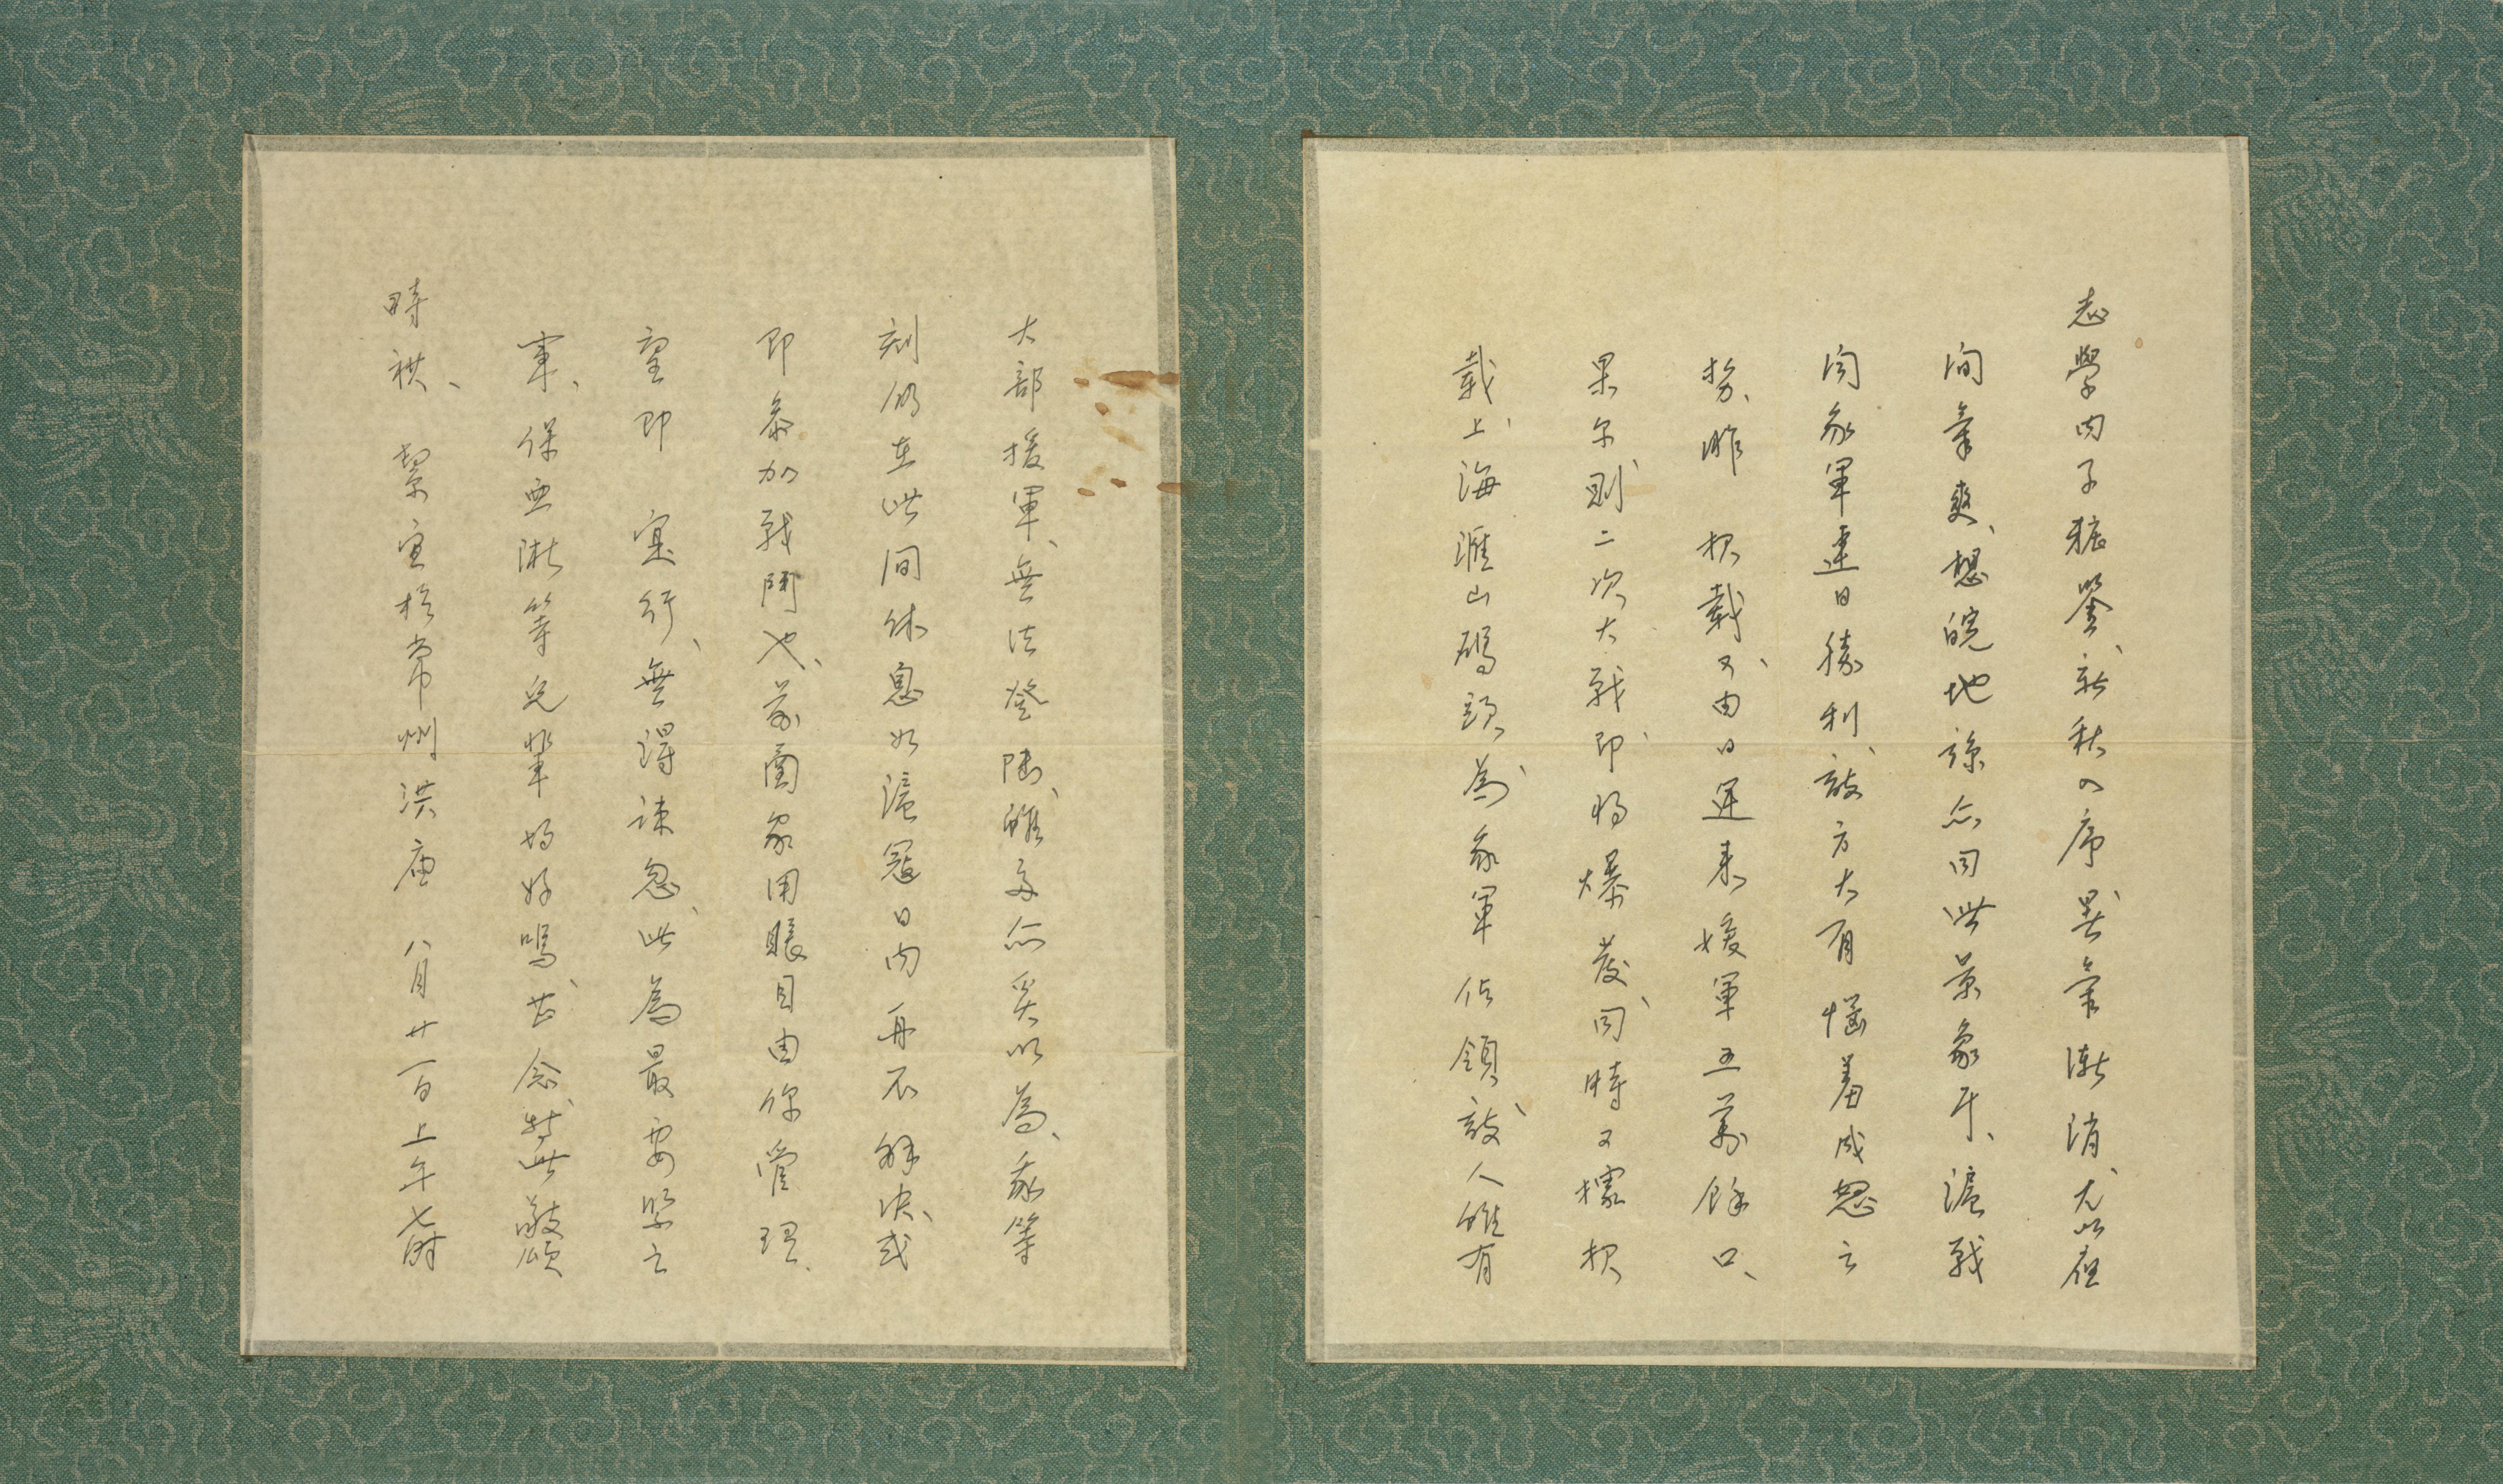 志學內子粧鑒、新秋入序、暑氣漸消、尤以夜
間氣爽、想皖地諒亦同此景象耳、滬戰
聞我軍連日勝利、敵方大有惱羞成怒之
勢、昨 報載、又由日運來援軍五萬餘口、
果尔則二次大戰、即將爆發、同時又據報
載、上海滙山碼頭、為我軍佔領、敵人雖有
大部援軍、無法登陸、雖多亦奚以為、我等
刻仍在此間休息、如滬寇日內再不解决、或
即參加戰鬥也、前圖家用賬目由你管理、
望即 寔行、無得疎忽、此為最要緊之
事、保亞漸等兒輩均好嗎、甚念、專此敬頌
時祺、 絜宜於常州洪庙 八月廿一日上午七時